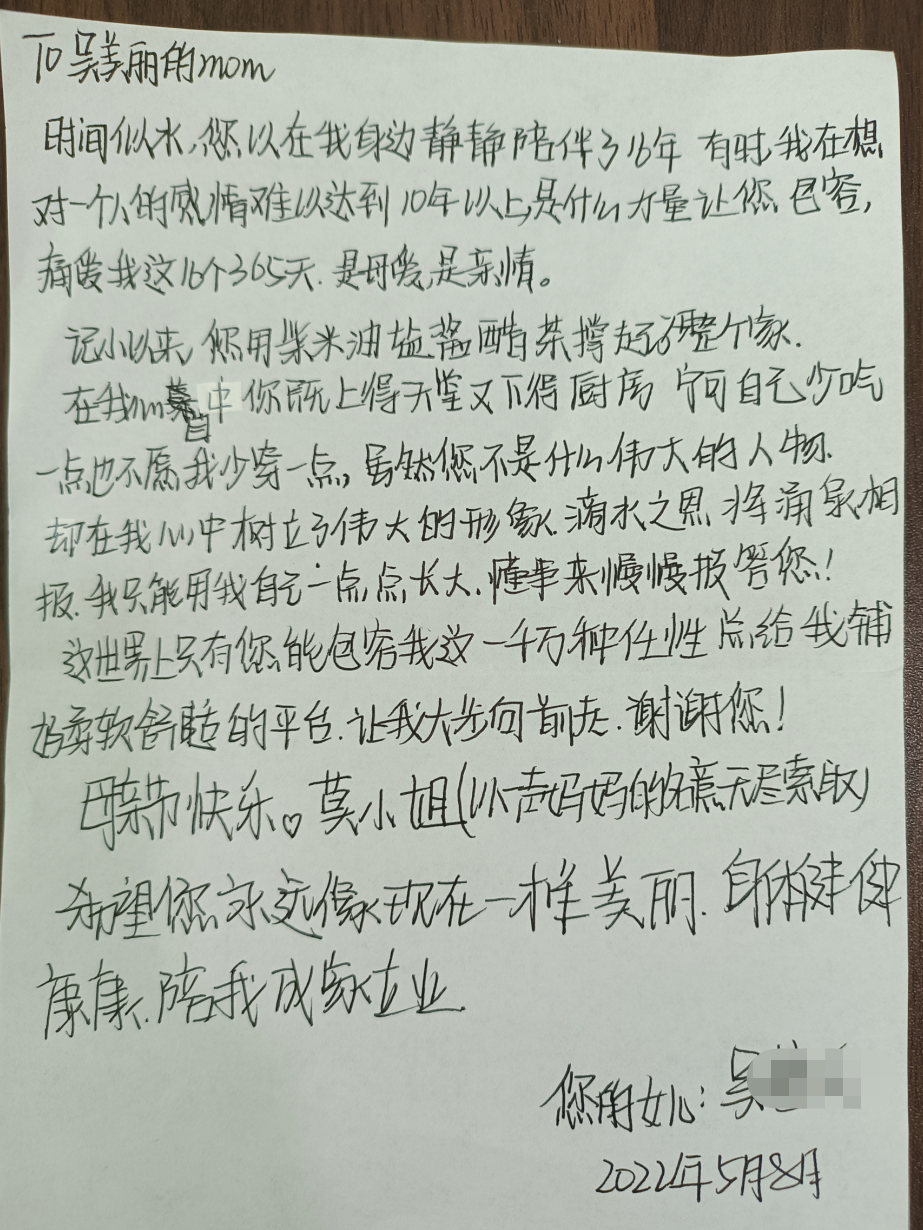 To 吴美丽的mom
时间似水,您以在我身边静静陪伴了16年 有时,我在想
对一个人的感情难以达到10年以上,是什么力量让您包容,
痛爱我这16个365天.是母爱,是亲情。
记小以来,您用柴米油盐酱醋茶撑起了整个家.
在我心目中你既上得天堂又下得厨房 宁可自己少吃
一点也不愿我少穿一点,虽然您不是什么伟大的人物.
却在我心中树立了伟大的形象.滴水之恩 将涌泉相
报.我只能用我自己一点点长大.懂事来慢慢报答您!
这世界上只有您能包容我这一千万种任性 总给我铺
好柔软舒适的平台.让我大步向前走.谢谢您!
母亲节快乐♡莫小姐(以一声妈妈的名 无尽索取)
希望您永远像现在一样美丽.身体健健
康康.陪我成家立业.
您的女儿:吴
2022年5月8月